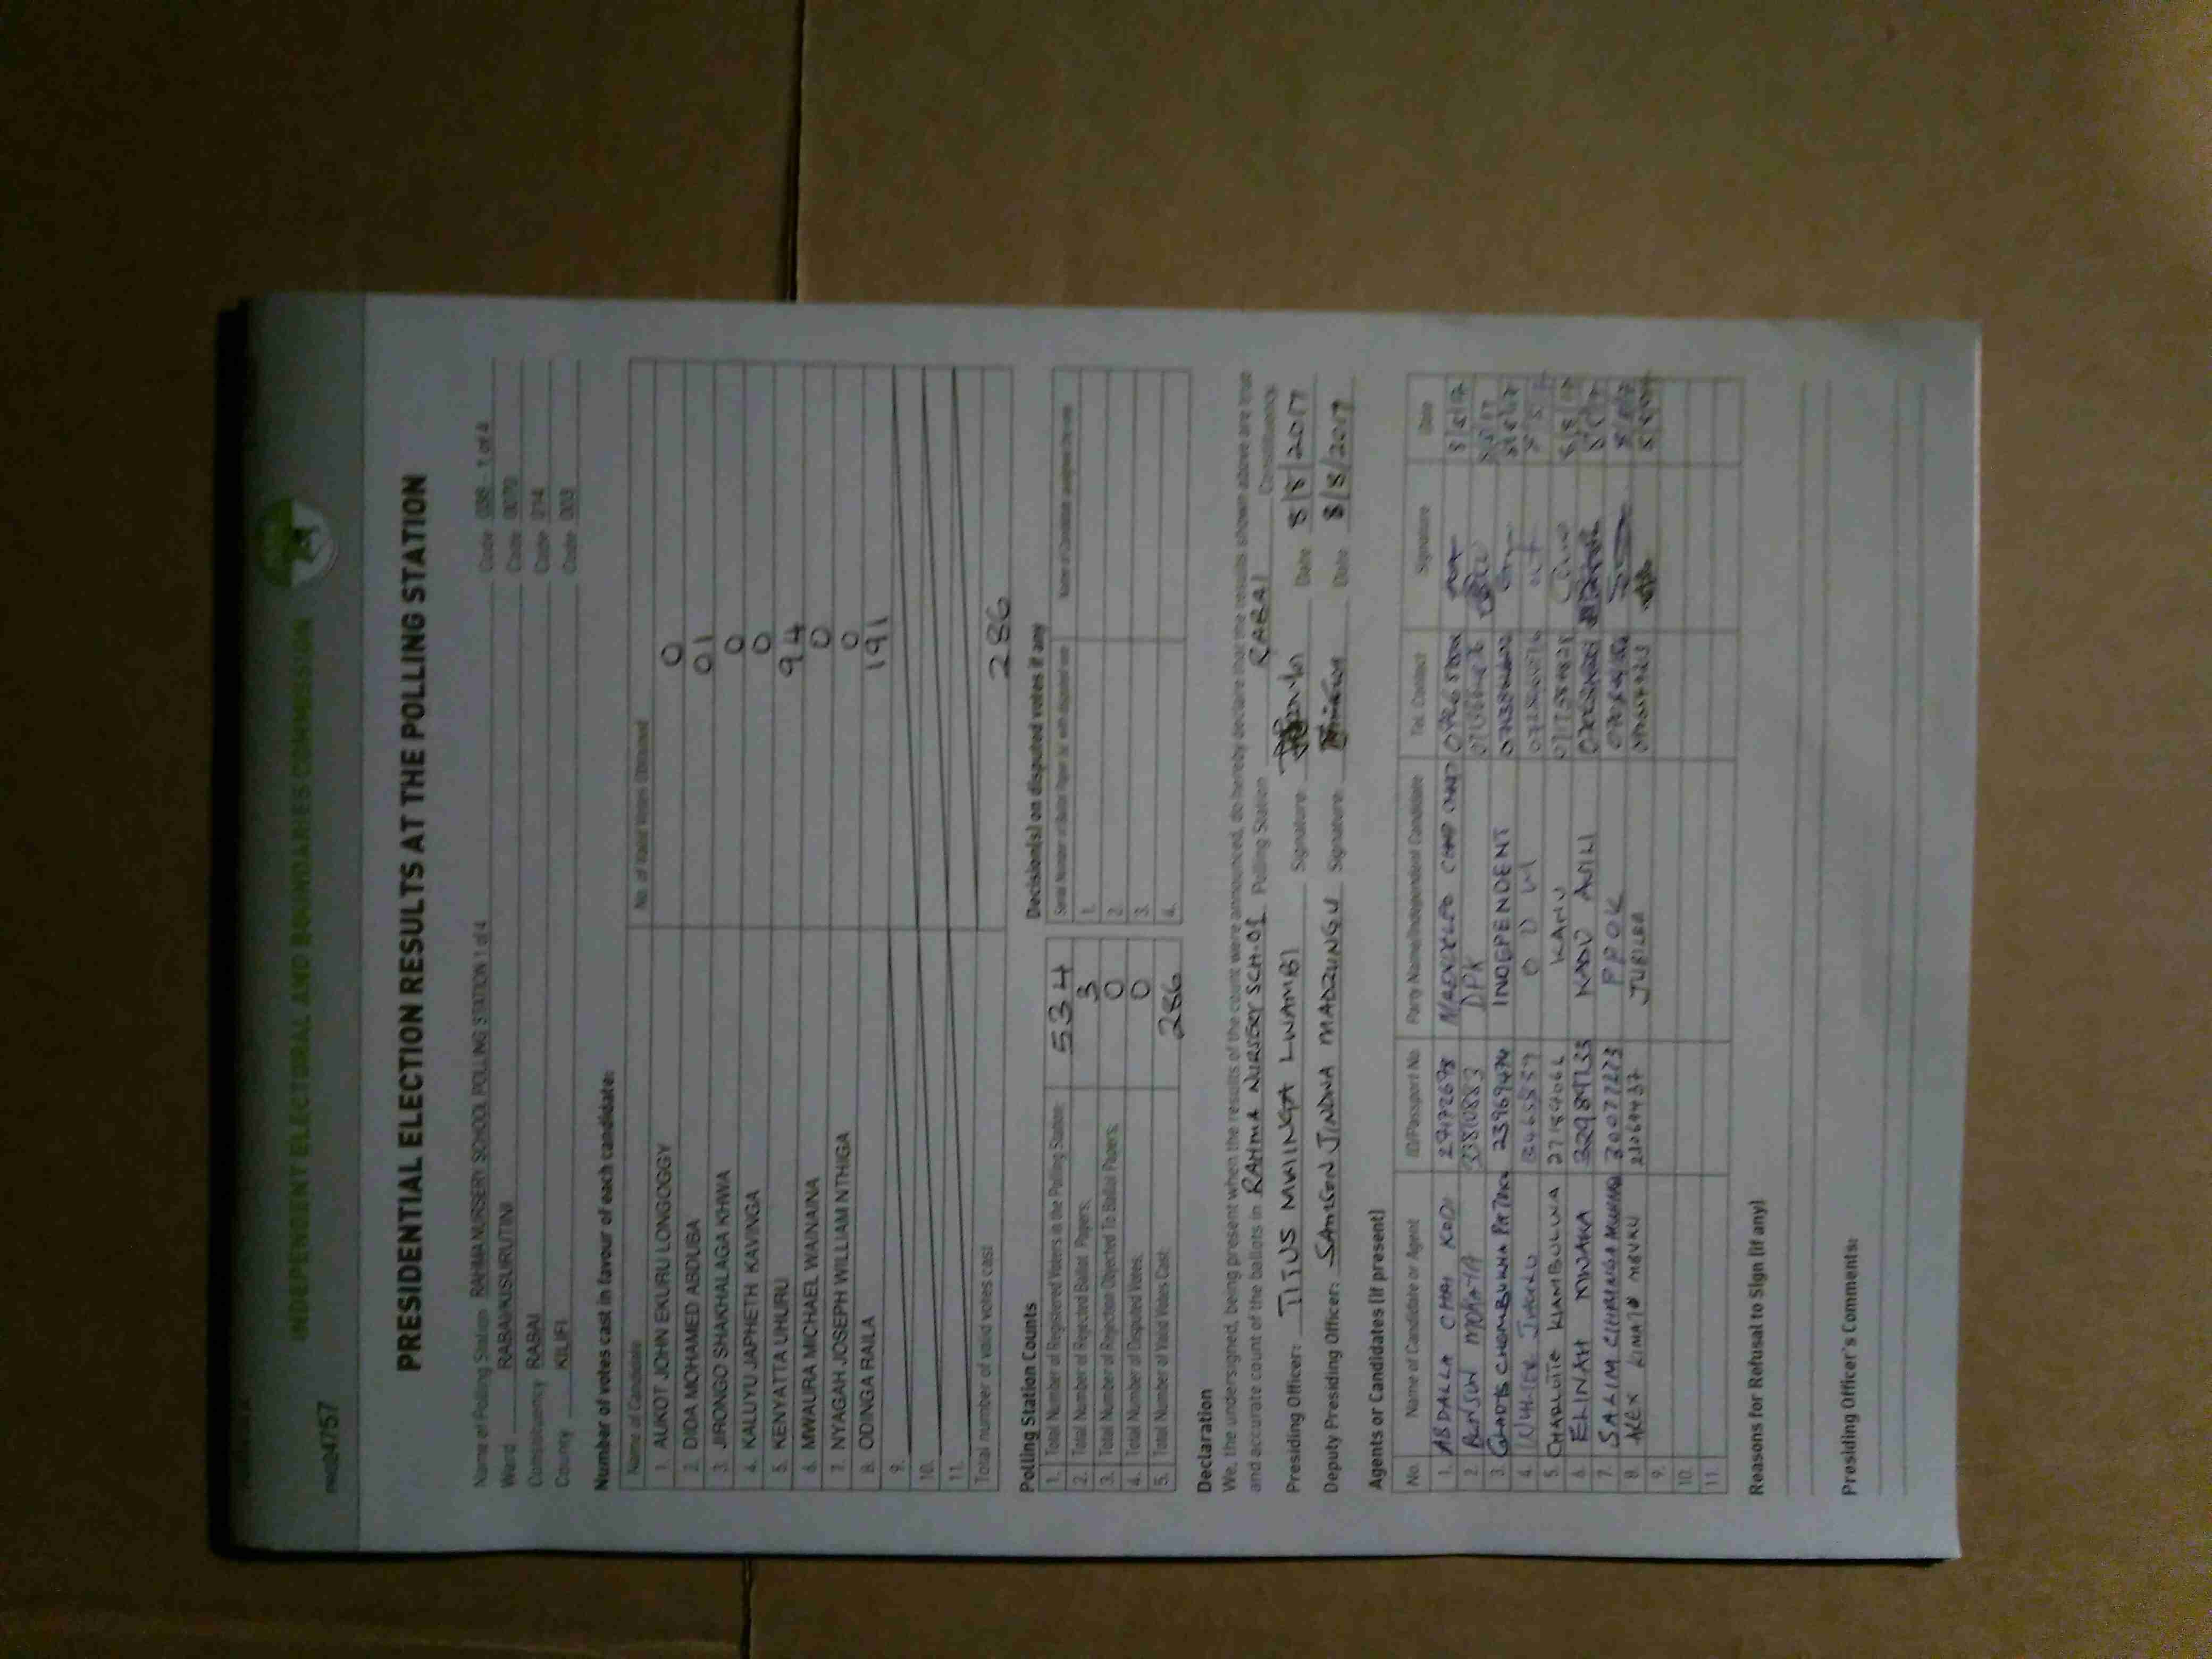 INDEPENDENT ELECTORAL AND BOUNDARIES COMMISSION
PRESIDENTIAL ELECTION RESULTS AT THE POLLING STATION
Name of Polling Station RAHMA NURSERY SCHOOL POLLING STATION 1 of 4 Code 038 - 1 of 4
Ward RABAI/KISURUTINI Code 0070
Constituency RABAI Code 014
County KILIFI Code 003
Number of votes cast in favour of each candidate:
Name of Candidate No. of Valid Votes Obtained
1. AUKOT JOHN EKURU LONGOGGY 0
2. DIDA MOHAMED ABDUBA 01
3. JIRONGO SHAKHALAGA KHWA 0
4. KALUYU JAPHETH KAVINGA 0
5. KENYATTA UHURU 94
6. MWAURA MICHAEL WAINAINA 0
7. NYAGAH JOSEPH WILLIAM NTHIGA 0
8. ODINGA RAILA 191
9.
10.
11.
Total number of valid votes cast 286
Polling Station Counts
1. Total Number of Registered Voters in the Polling Station: 534
2. Total Number of Rejected Ballot Papers: 3
3. Total Number of Rejection Objected To Ballot Papers: 0
4. Total Number of Disputed Votes: 0
5. Total Number of Valid Votes Cast: 286
Decision(s) on disputed votes if any
1.
2.
3.
4.
Declaration
We, the undersigned, being present when the results of the count were announced, do hereby declare that the results shown above are true
and accurate count of the ballots in RAHMA NURSERY SCH-01 Polling Station RABAI Constituency
Presiding Officer: TITUS MWINGA LWAMBI Signature: Date 8/8/2017
Deputy Presiding Officer: SAMSON JINDWA MADZUNGU Signature: Date 8/8/2017
Agents or Candidates (if present)
No. Name of Candidate or Agent ID/Passport No. Party Name/Independent Candidate Tel. Contact Signature Date
1. ABDALLA CHAI KODI 8/8/17
2. BENSON DPK
3. INDEPENDENT
4. ODM
5. CHARLITE 27189062 KANU 8/8/17
6. ELINAH MWAKA KADU ASILI
7. SALIM 30072273 PPOK
8. ALEX 21069437 JUBILEE
9.
10.
11.
Reasons for Refusal to Sign (if any)
Presiding Officer's Comments: